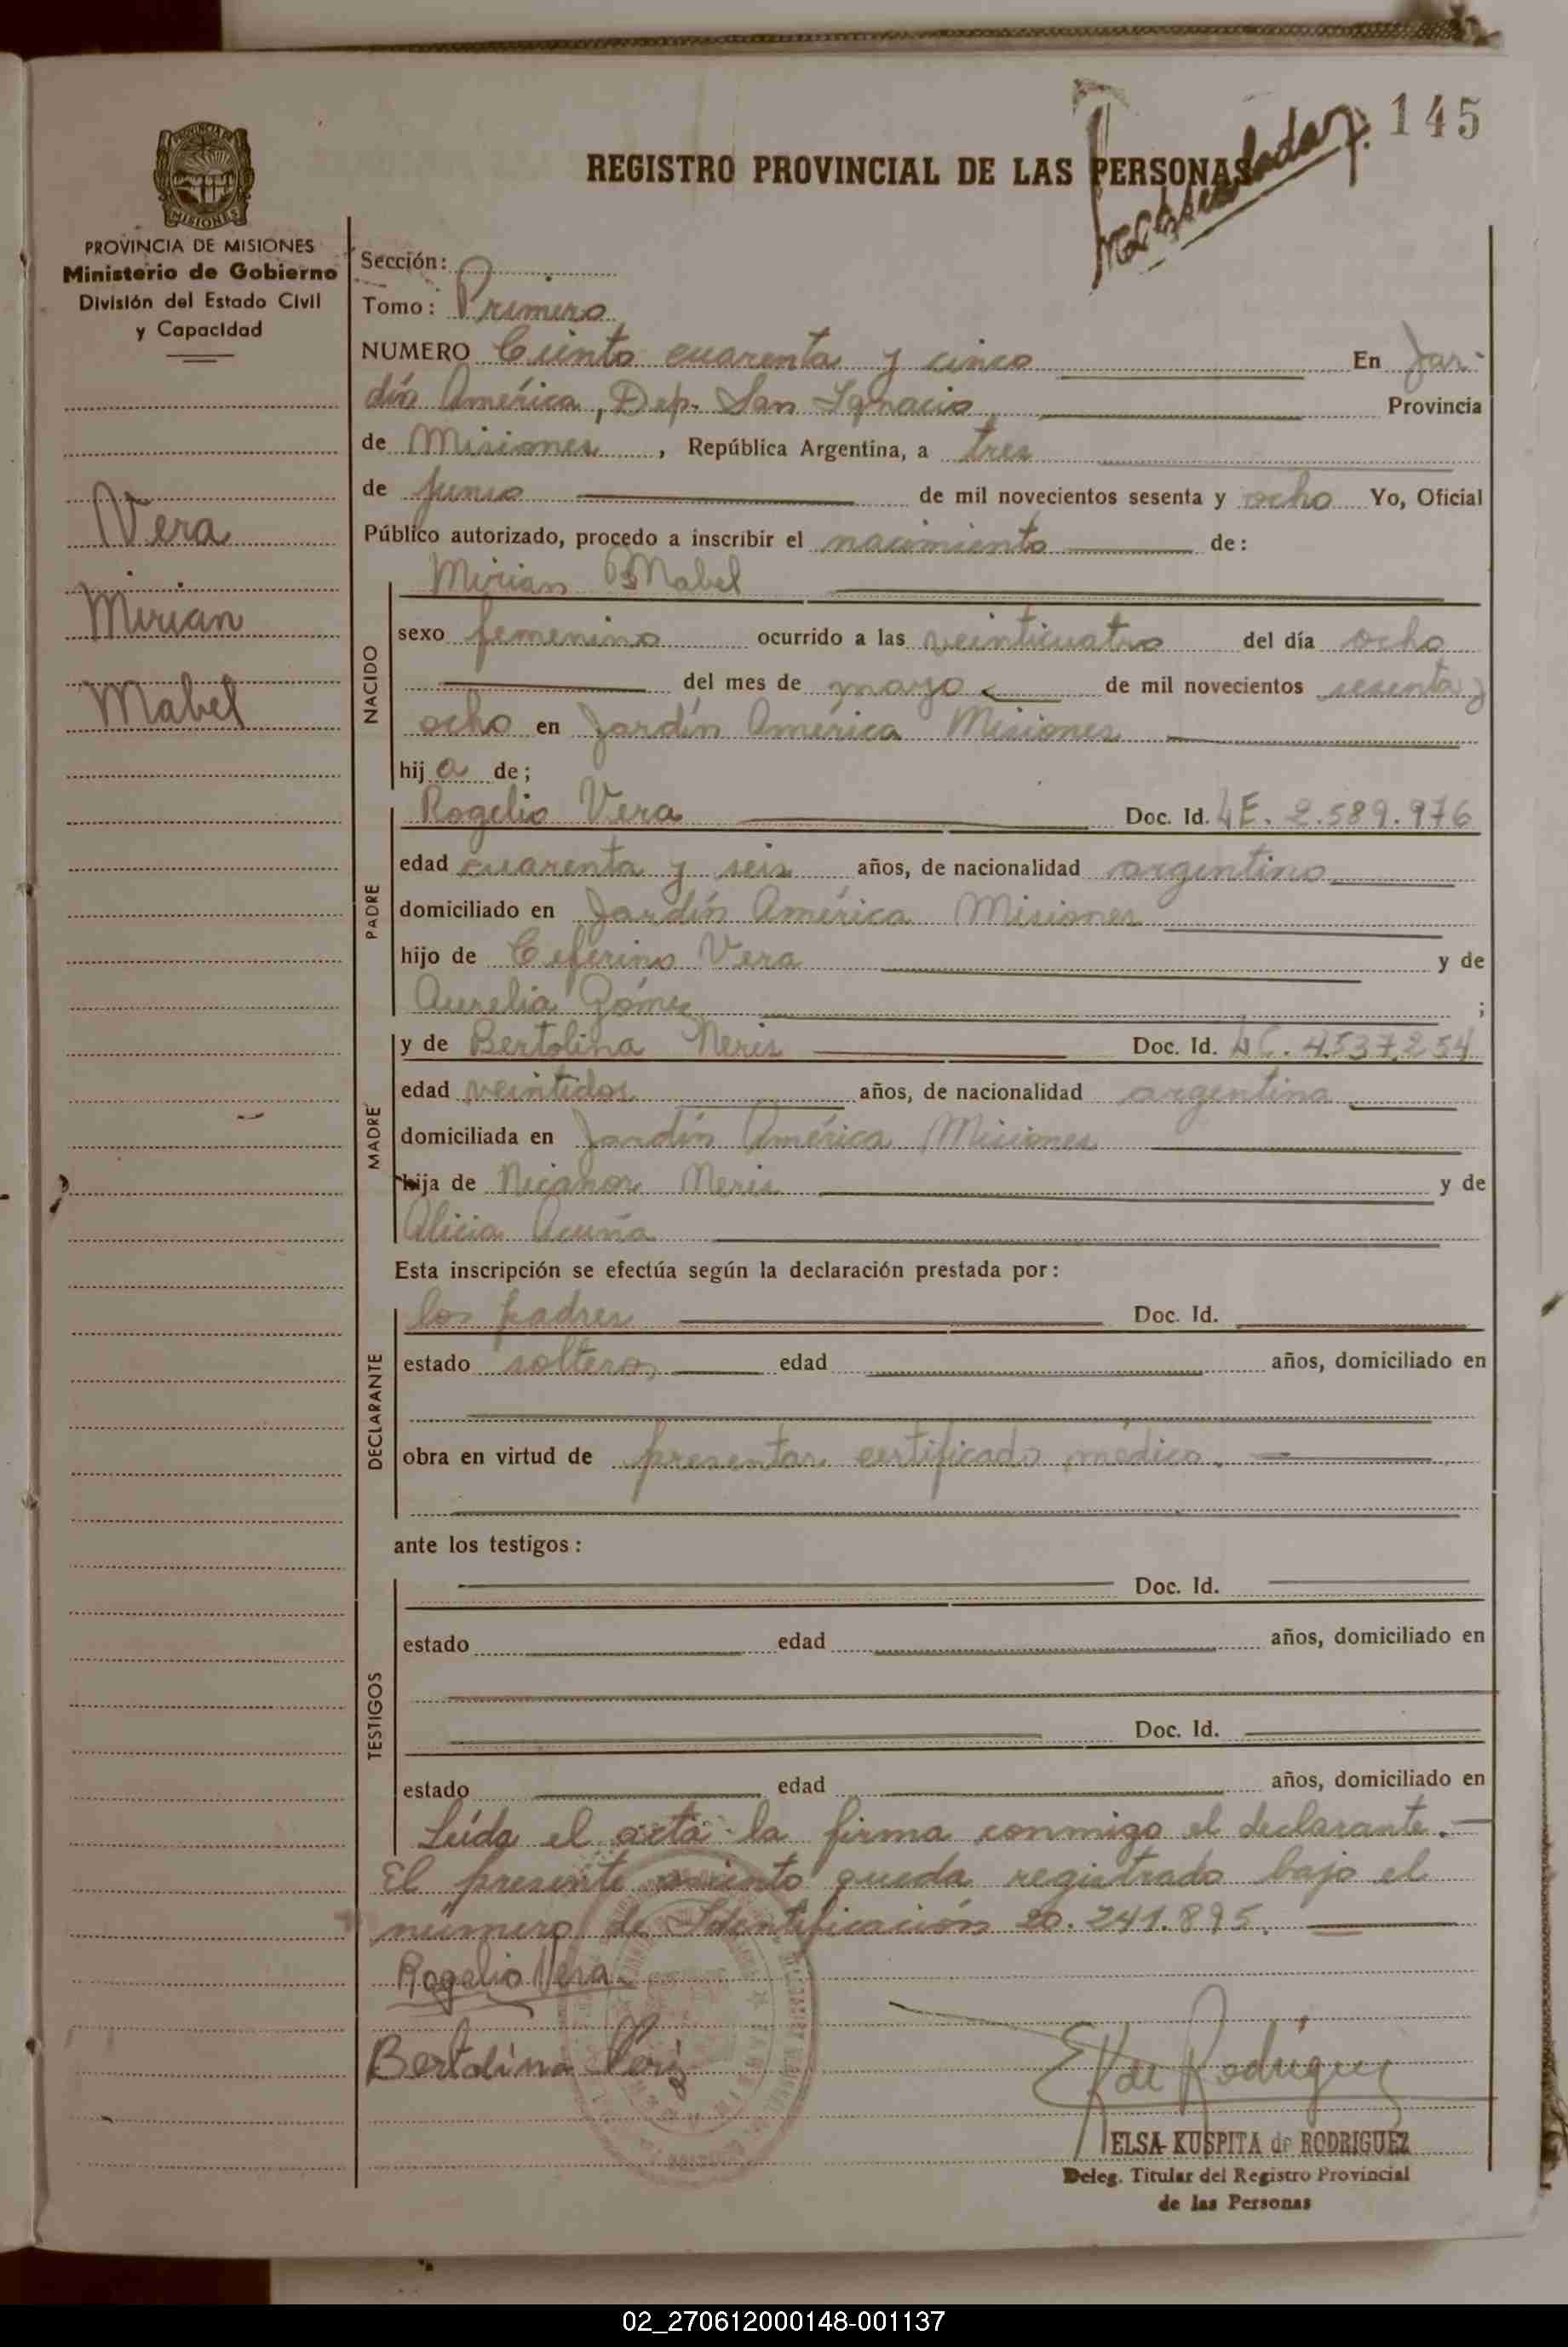 145
REGISTRO PROVINCIAL DE LAS PERSONAS
PROVINCIA DE MISIONES
Ministerio de Gobierno
División del Estado Civil
y Capacidad
Vera
Mirian
Mabel
Sección:
Tomo: Primero
NUMERO Ciento cuarenta y cinco En Jar-
dín América, Dep. San Ignacio Provincia
de Misiones, República Argentina, a tres
de junio de mil novecientos sesenta y ocho Yo, Oficial
Público autorizado, procedo a inscribir el nacimiento de:
NACIDO
Mirian Mabel
sexo femenino ocurrido a las veinticuatro del día ocho
del mes de mayo de mil novecientos sesenta y
ocho en Jardín América Misiones
hija de;
PADRE
Rogelio Vera Doc. Id. LE. 2.589.976
edad cuarenta y seis años, de nacionalidad argentino
domiciliado en Jardín América Misiones
hijo de Ceferino Vera y de
Aurelia Gómez ;
MADRE
y de Bertolina Neris Doc. Id. LC. 4.537.254
edad veintidos años, de nacionalidad argentina
domiciliada en Jardín América Misiones
hija de Nicanor Neris y de
Alicia Acuña
Esta inscripción se efectúa según la declaración prestada por:
DECLARANTE
los padres Doc. Id.
estado solteros edad años, domiciliado en
obra en virtud de presentar certificado médico.
ante los testigos:
TESTIGOS
Doc. Id.
estado edad años, domiciliado en
Doc. Id.
estado edad años, domiciliado en
Leída el acta la firma conmigo el declarante.
El presente asiento queda registrado bajo el
número de Identificación 20.241.895.
Rogelio Vera
Bertolina Neris
E K de Rodriguez
ELSA KUSPITA de RODRIGUEZ
Deleg. Titular del Registro Provincial
de las Personas
02_270612000148-001137